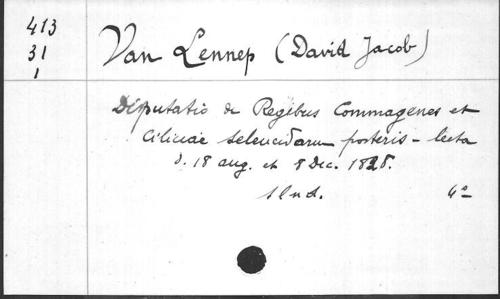 413
31
1
Van Lennep (David Jacob)
Disputatio de Regibus Commagenes et
Ciliciae seleucidarum posteris - lecta
d. 18 aug. et 8 Dec. 1828.
s l n d. 4º